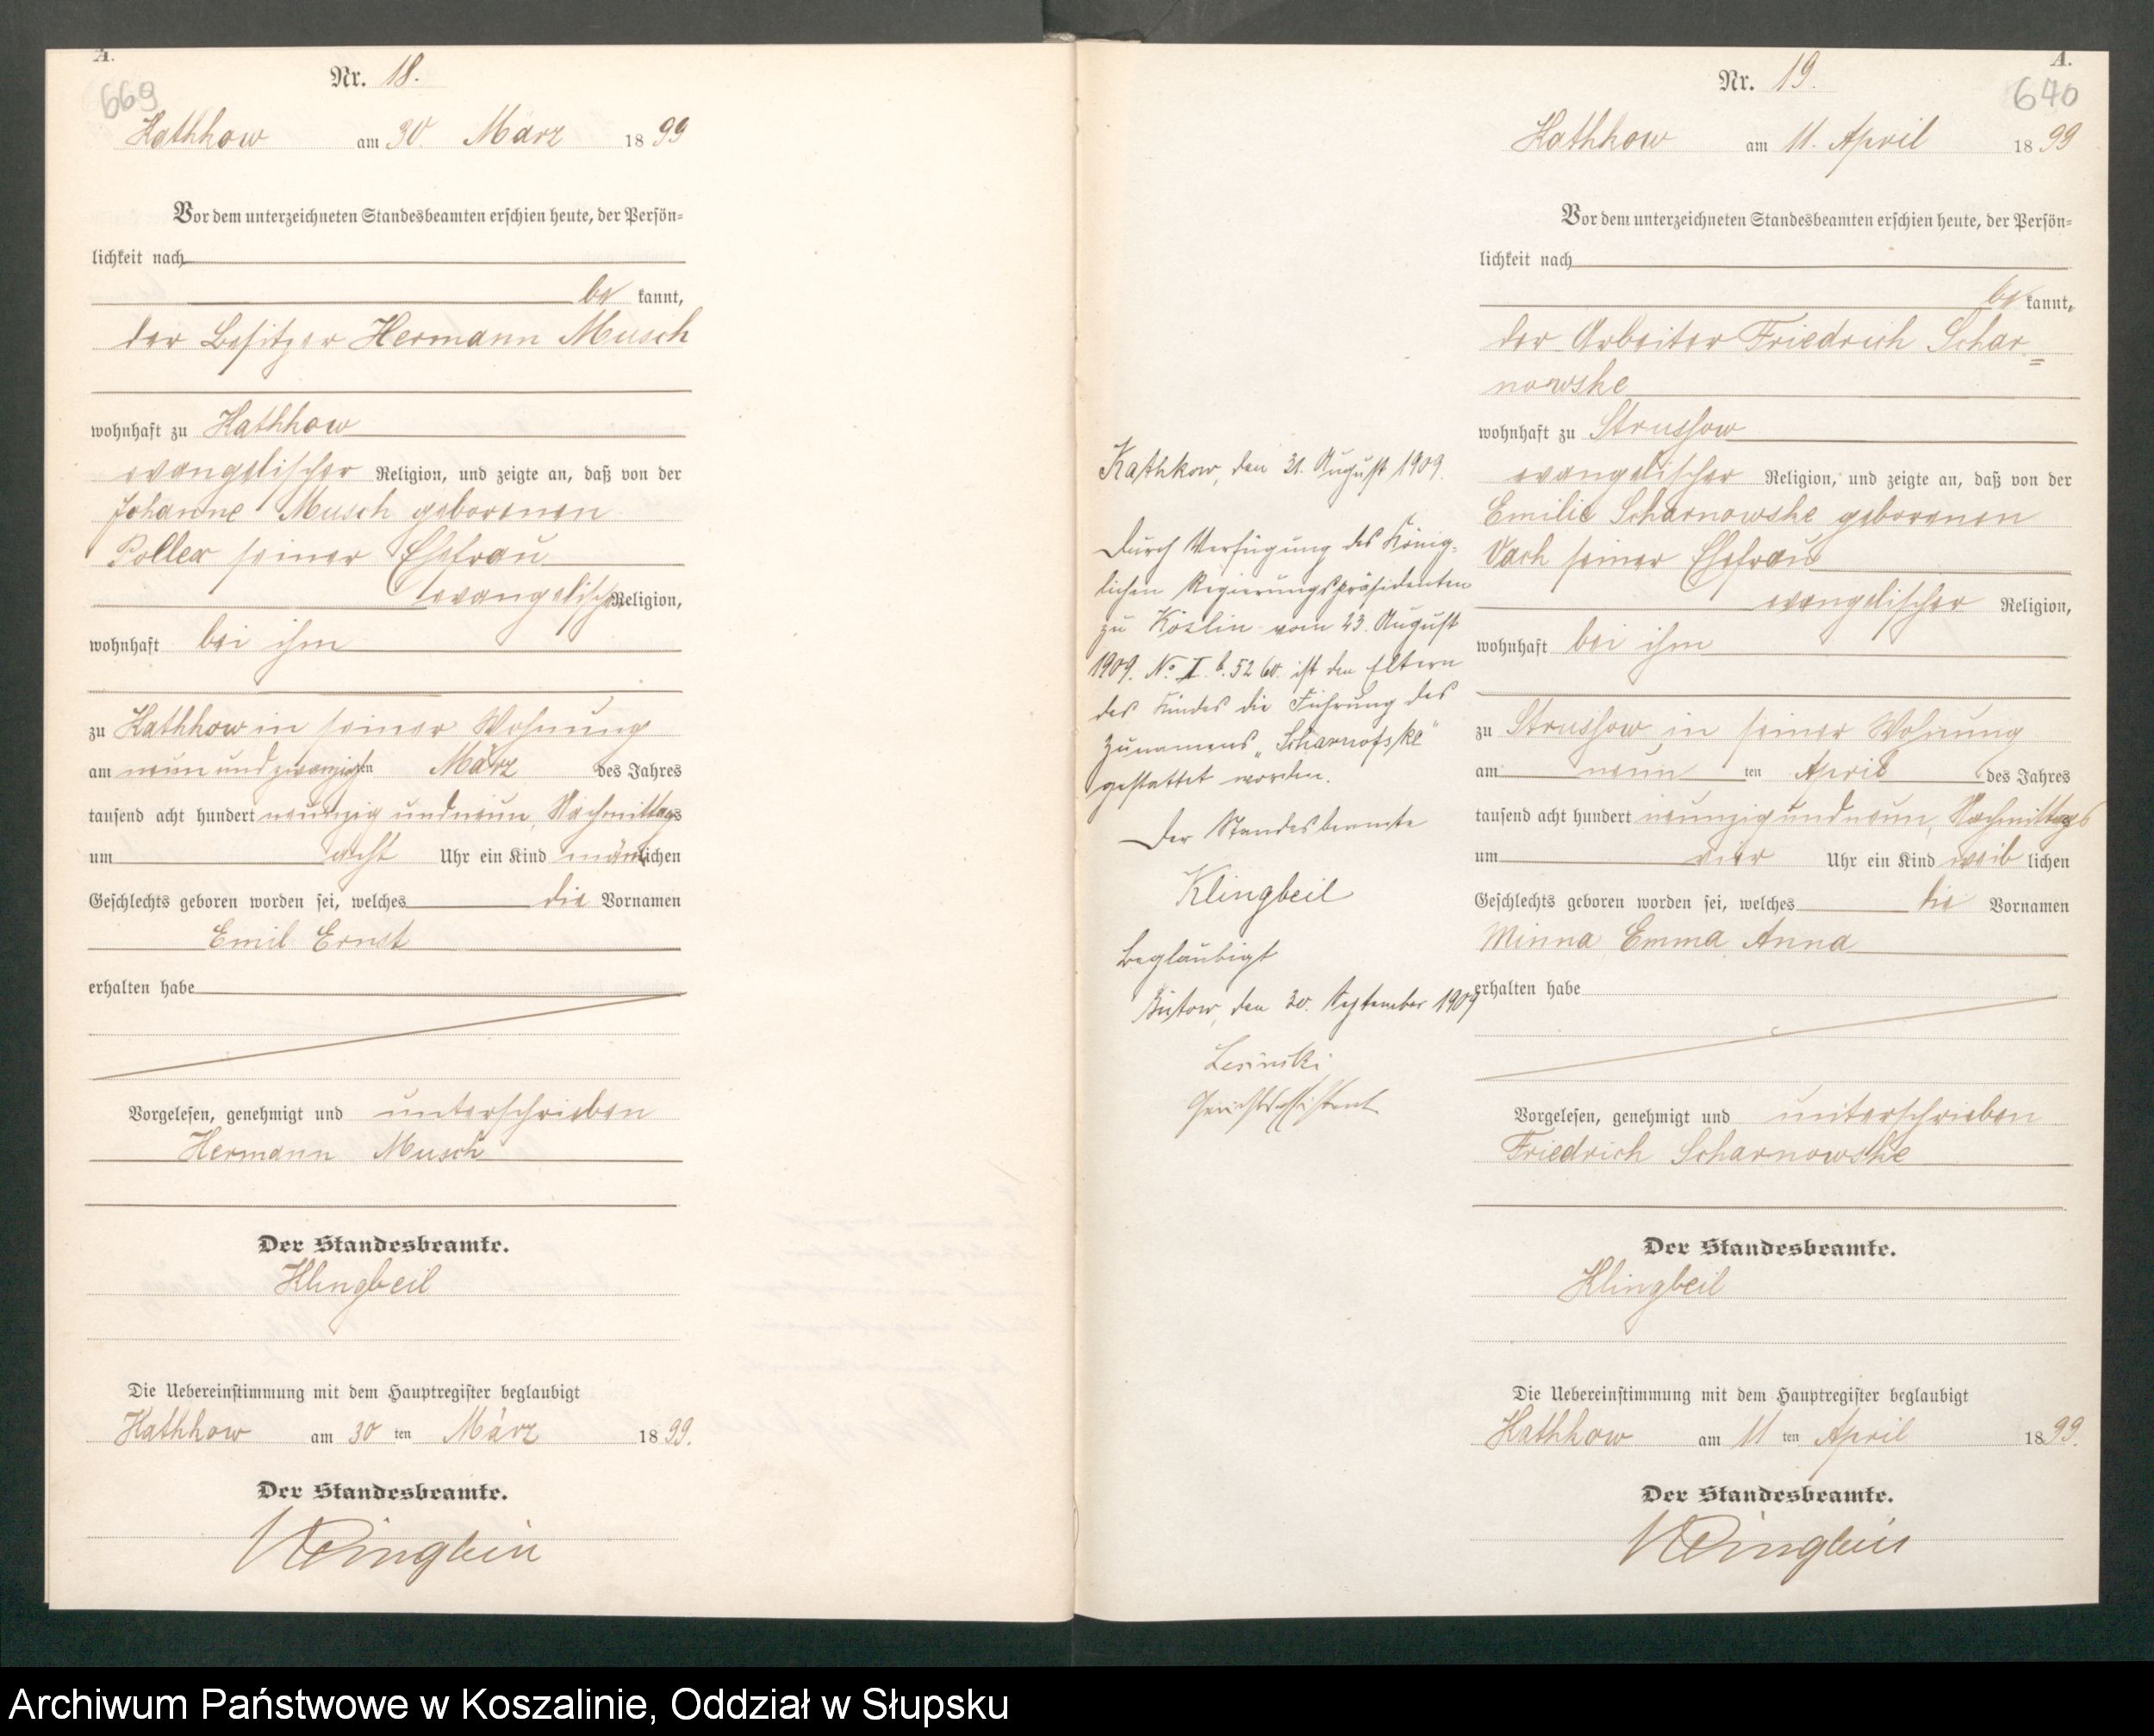 A.
669
Nr. 18.
Kathkow am 30. März 1899
Vor dem unterzeichneten Standesbeamten erschien heute, der Persön-
lichkeit nach
be kannt,
der Besitzer Hermann Musch
wohnhaft zu Kathkow
evangelischer Religion, und zeigte an, daß von der
Johanne Musch geborenen
Pollex seiner Ehefrau
evangelischer Religion,
wohnhaft bei ihm
zu Kathkow in seiner Wohnung
am neun und zwanzigsten März des Jahres
tausend acht hundert neunzig und neun, Nachmittags
um acht Uhr ein Kind männlichen
Geschlechts geboren worden sei, welches die Vornamen
Emil Ernst
erhalten habe
Vorgelesen, genehmigt und unterschrieben
Hermann Musch
Der Standesbeamte.
Klingbeil
Die Uebereinstimmung mit dem Hauptregister beglaubigt
Kathkow am 30 ten März 1899.
Der Standesbeamte.
Klingbeil
Kathkow, den 31. August 1909.
Durch Verfügung des König-
lichen Regierungspräsidenten
zu Köslin vom 23. August
1909. No I. b. 5260. ist den Eltern
des Kindes die Führung des
Zunamens „Scharnofske"
gestattet worden.
Der Standesbeamte
Klingbeil
Beglaubigt
Bütow, den 30. September 1909
Lesinski,
Gerichtsassistent
A.
640
Nr. 19.
Kathkow am 11. April 1899
Vor dem unterzeichneten Standesbeamten erschien heute, der Persön-
lichkeit nach
be kannt,
der Arbeiter Friedrich Schar=
nowske
wohnhaft zu Strussow
evangelischer Religion, und zeigte an, daß von der
Emilie Scharnowske geborenen
Vach seiner Ehefrau
evangelischer Religion,
wohnhaft bei ihm
zu Strussow in seiner Wohnung
am neun ten April des Jahres
tausend acht hundert neunzig und neun, Nachmittags
um vier Uhr ein Kind weib lichen
Geschlechts geboren worden sei, welches die Vornamen
Minna Emma Anna
erhalten habe
Vorgelesen, genehmigt und unterschrieben
Friedrich Scharnowske
Der Standesbeamte.
Klingbeil
Die Uebereinstimmung mit dem Hauptregister beglaubigt
Kathkow am 11 ten April 1899.
Der Standesbeamte.
Klingbeil
Archiwum Państwowe w Koszalinie, Oddział w Słupsku